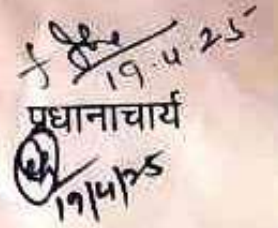 19.4.25
प्रधानाचार्य
19/4/25